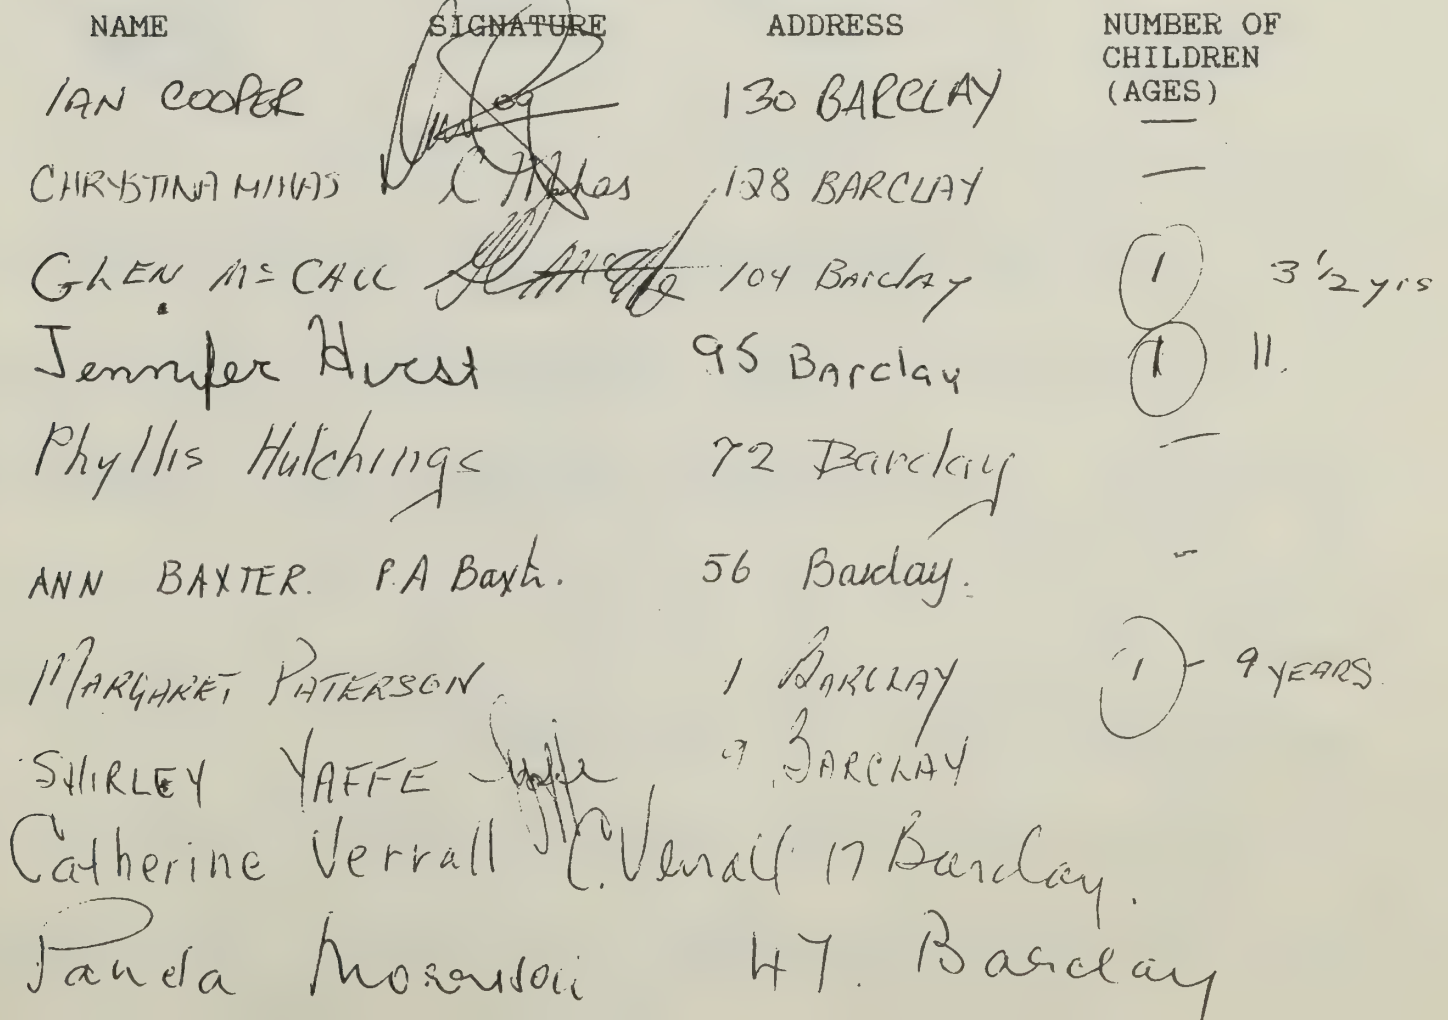 NAME SIGNATURE ADDRESS NUMBER OF
CHILDREN
(AGES)
IAN COOPER 130 BARCLAY —
CHRYSTINA MIHAS C Mihas 128 BARCLAY —
GLEN McCALL 104 BARClAY 1 3 1/2 yrs
Jennifer Hurst 95 BArclay 1 11.
Phyllis Hutchings 72 Barclay —
ANN BAXTER. P.A Baxter. 56 Barclay. -
MARGARET PATERSON 1 BARCLAY 1 - 9 YEARS
SHIRLEY YAFFE SYaffe 9 BARCLAY
Catherine Verrall C. Verrall 17 Barclay.
47. Barclay